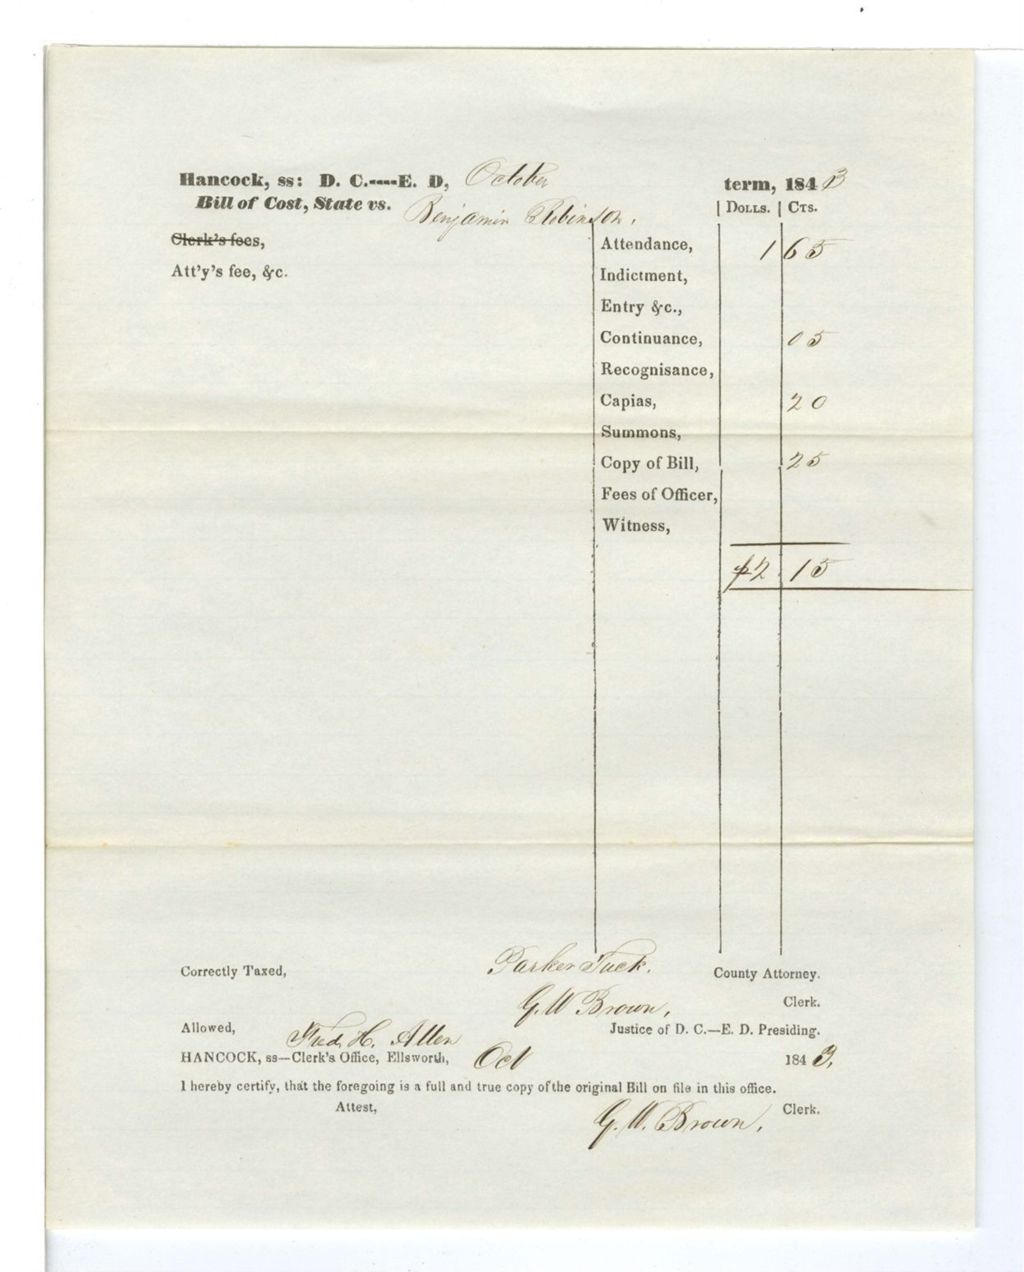 Hancock, ss: D. C.----E. D, October term, 1843
Bill of Cost, State vs. Benjamin Robinson, | DOLLS. | CTS.
Clerk's fees, Attendance, 1 65
Att'y's fee, &c. Indictment,
Entry &c.,
Continuance, 05
Recognisance,
Capias, 20
Summons,
Copy of Bill, 25
Fees of Officer,
Witness,
$2 15
Correctly Taxed, Parker Tuck. County Attorney.
G. W Brown, Clerk.
Allowed, Fred. H. Allen Justice of D. C.—E. D. Presiding.
HANCOCK, ss—Clerk's Office, Ellsworth, Oct 1843,
I hereby certify, that the foregoing is a full and true copy of the original Bill on file in this office.
Attest, G. W. Brown, Clerk.